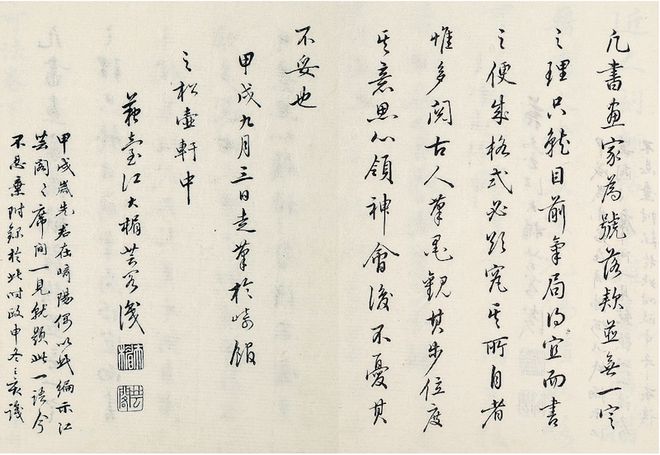 凡書画家為號落款並無一定
之理只就目前章局得宜而書
之便成格式必欲究其所自者
惟多閱古人筆墨觀其步位度
其意思心領神會後不憂其
不妥也
甲戌九月三日走筆於崎館
之松壺軒中
蘇臺江大楣芸閣識
甲戌歲先君在崎陽偶以此編示江
芸閣々席間一見就題此一語今
不忍棄附錄於此時政申冬之亥識